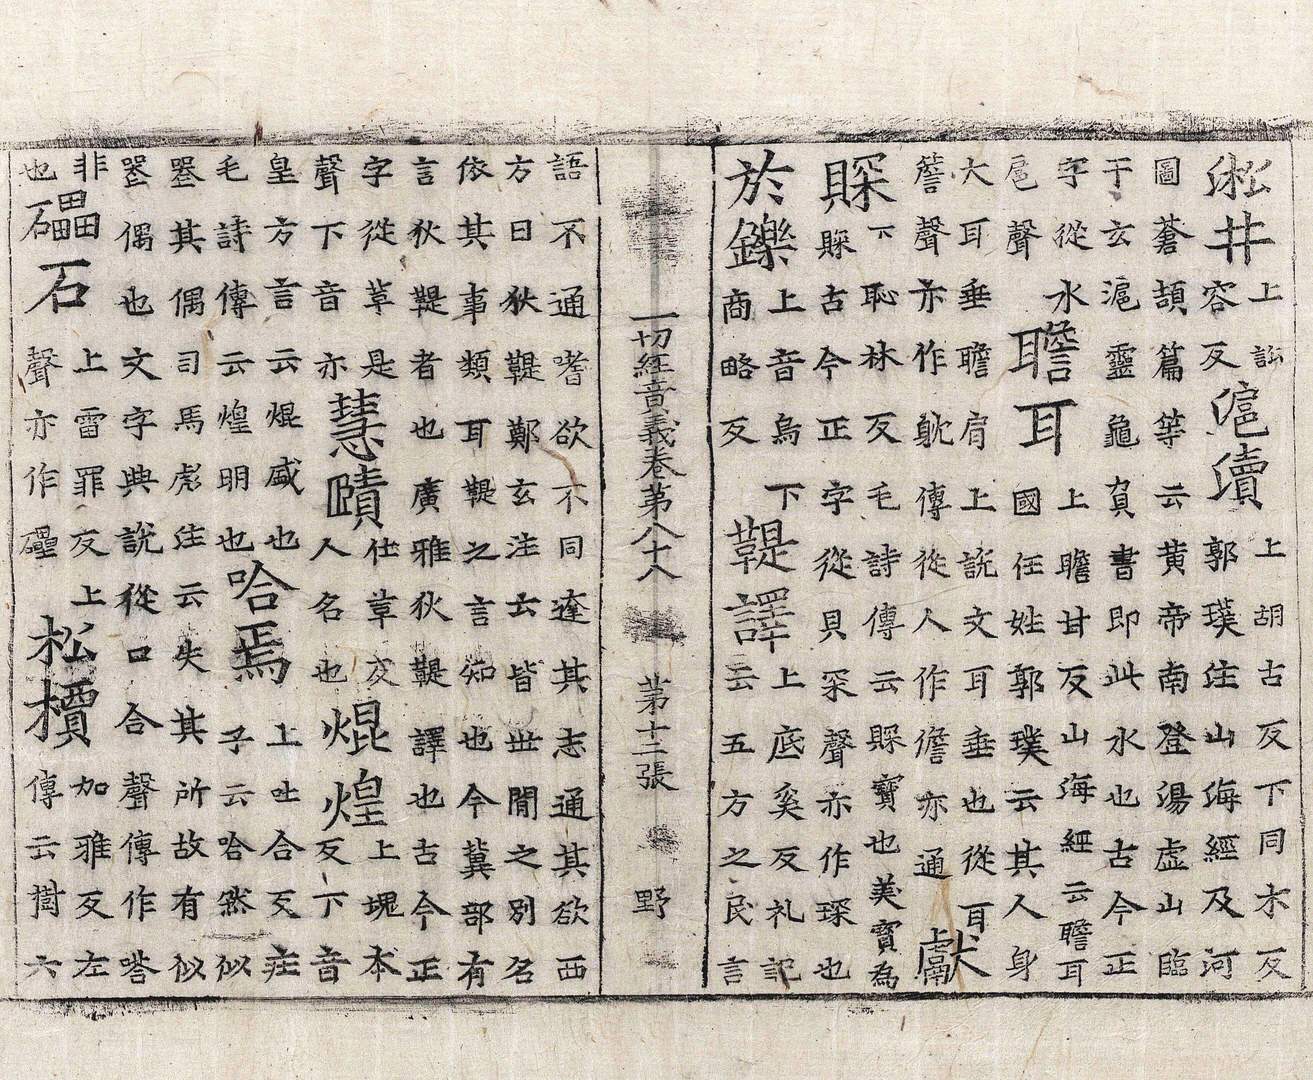 淞井上訟容反滬瀆上胡古反下同木反郭璞注山海經及河
圖蒼頡篇等云黄帝南登湯虛山臨
于玄滬靈龜負書即此水也古今正
字從水扈聲聸耳上瞻甘反山海經云聸耳國任姓郭璞云其人身
大耳垂聸肩上說文耳垂也從耳
詹聲亦作躭傳從人作儋亦通獻
賝下恥林反毛詩傳云賝寶也美寳為賝古今正字從貝罙聲亦作琛也
於鑠上音烏下商略反鞮譯上底奚反礼記云五方之民言
一切經音義卷第八十八 第十二張 野
語不通嗜欲不同達其志通其欲西
方曰狄鞮鄭玄注云皆世間之別名
依其事類耳鞮之言知也今冀部有
言狄鞮者也廣雅狄鞮譯也古今正
字從革是聲下音亦慧賾仕革反人名也焜煌上魂本反下音
皇方言云焜盛也毛詩傳云煌明也哈焉上吐合反莊子云哈然似
其偶司馬彪注云失其所故有似
偶也文字典說從口合聲傳作嗒
非也礧石上雷罪反上聲亦作礨松檟加雅反左傳云樹六